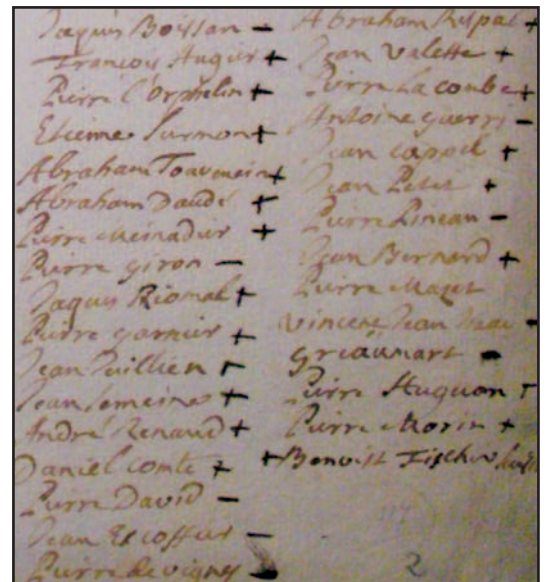 Jaques Boissan –
François Augir +
Pierre l'Orphelin +
Etienne Surmont +
Abraham Touvenein +
Abraham Daudé +
Pierre Meinadier +
Pierre giron –
Jaques Riomal +
Pierre garnier +
Jean Juillien r
Jean Semeines +
André Renaud +
Daniel comte +
Pierre David –
Jean Escoffier –
Pierre Devignes –
Abraham Rispal +
Jean Valette +
Pierre Lacombe +
Antoine guerri –
Jean capoil +
Jean Petit +
Pierre Pineau –
Jean Bernard +
Pierre Mazet
Vincent Jean Isaac –
griaumart –
Pierre Huguon r
Pierre Morin +
+ Benoist Fischer
117
2